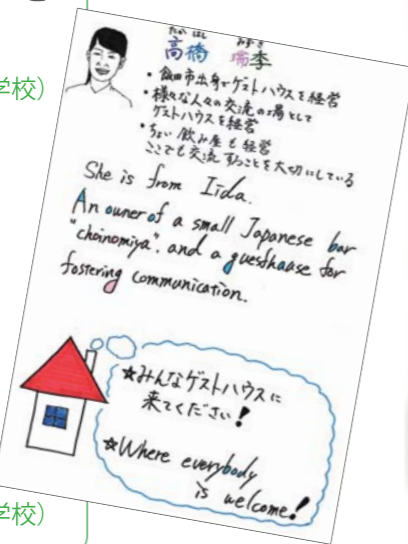 学校)
たか はし みずき
高橋 瑞季
・飯田市出身でゲストハウスを経営
・様々な人々の交流の場として
ゲストハウスを経営
・ちょい飲み屋も経営
ここでも交流することを大切にしている
She is from Iida.
An owner of a small Japanese bar
"choinomiya". and a guesthouse for
fostering communication.
☆みんなゲストハウスに
来てください!
☆Where everybody
is welcome!
学校)